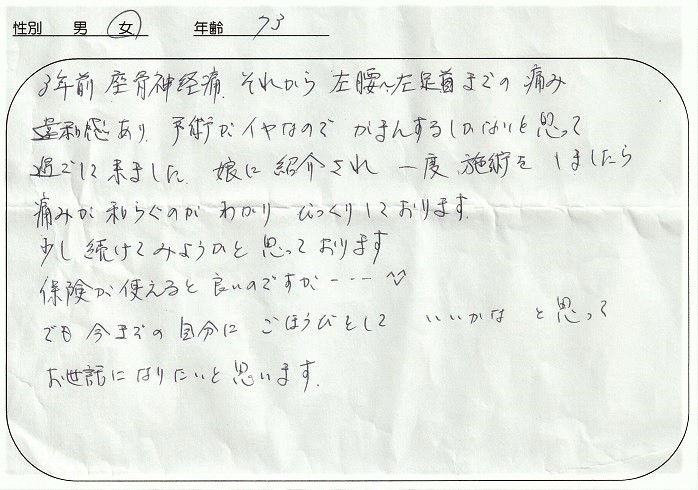 性別 男 女 年齢 73
3年前 座骨神経痛. それから 左腰～左足首までの 痛み
違和感あり, 手術がイヤなので がまんするしかないと思って
過ごして来ました. 娘に紹介され 一度 施術を しましたら
痛みが和らぐのが わかり びっくりしております.
少し続けてみようかと思っております
保険が使えると良いのですが----
でも今までの自分に ごほうびとして いいかな と思って
お世話になりたいと思います.